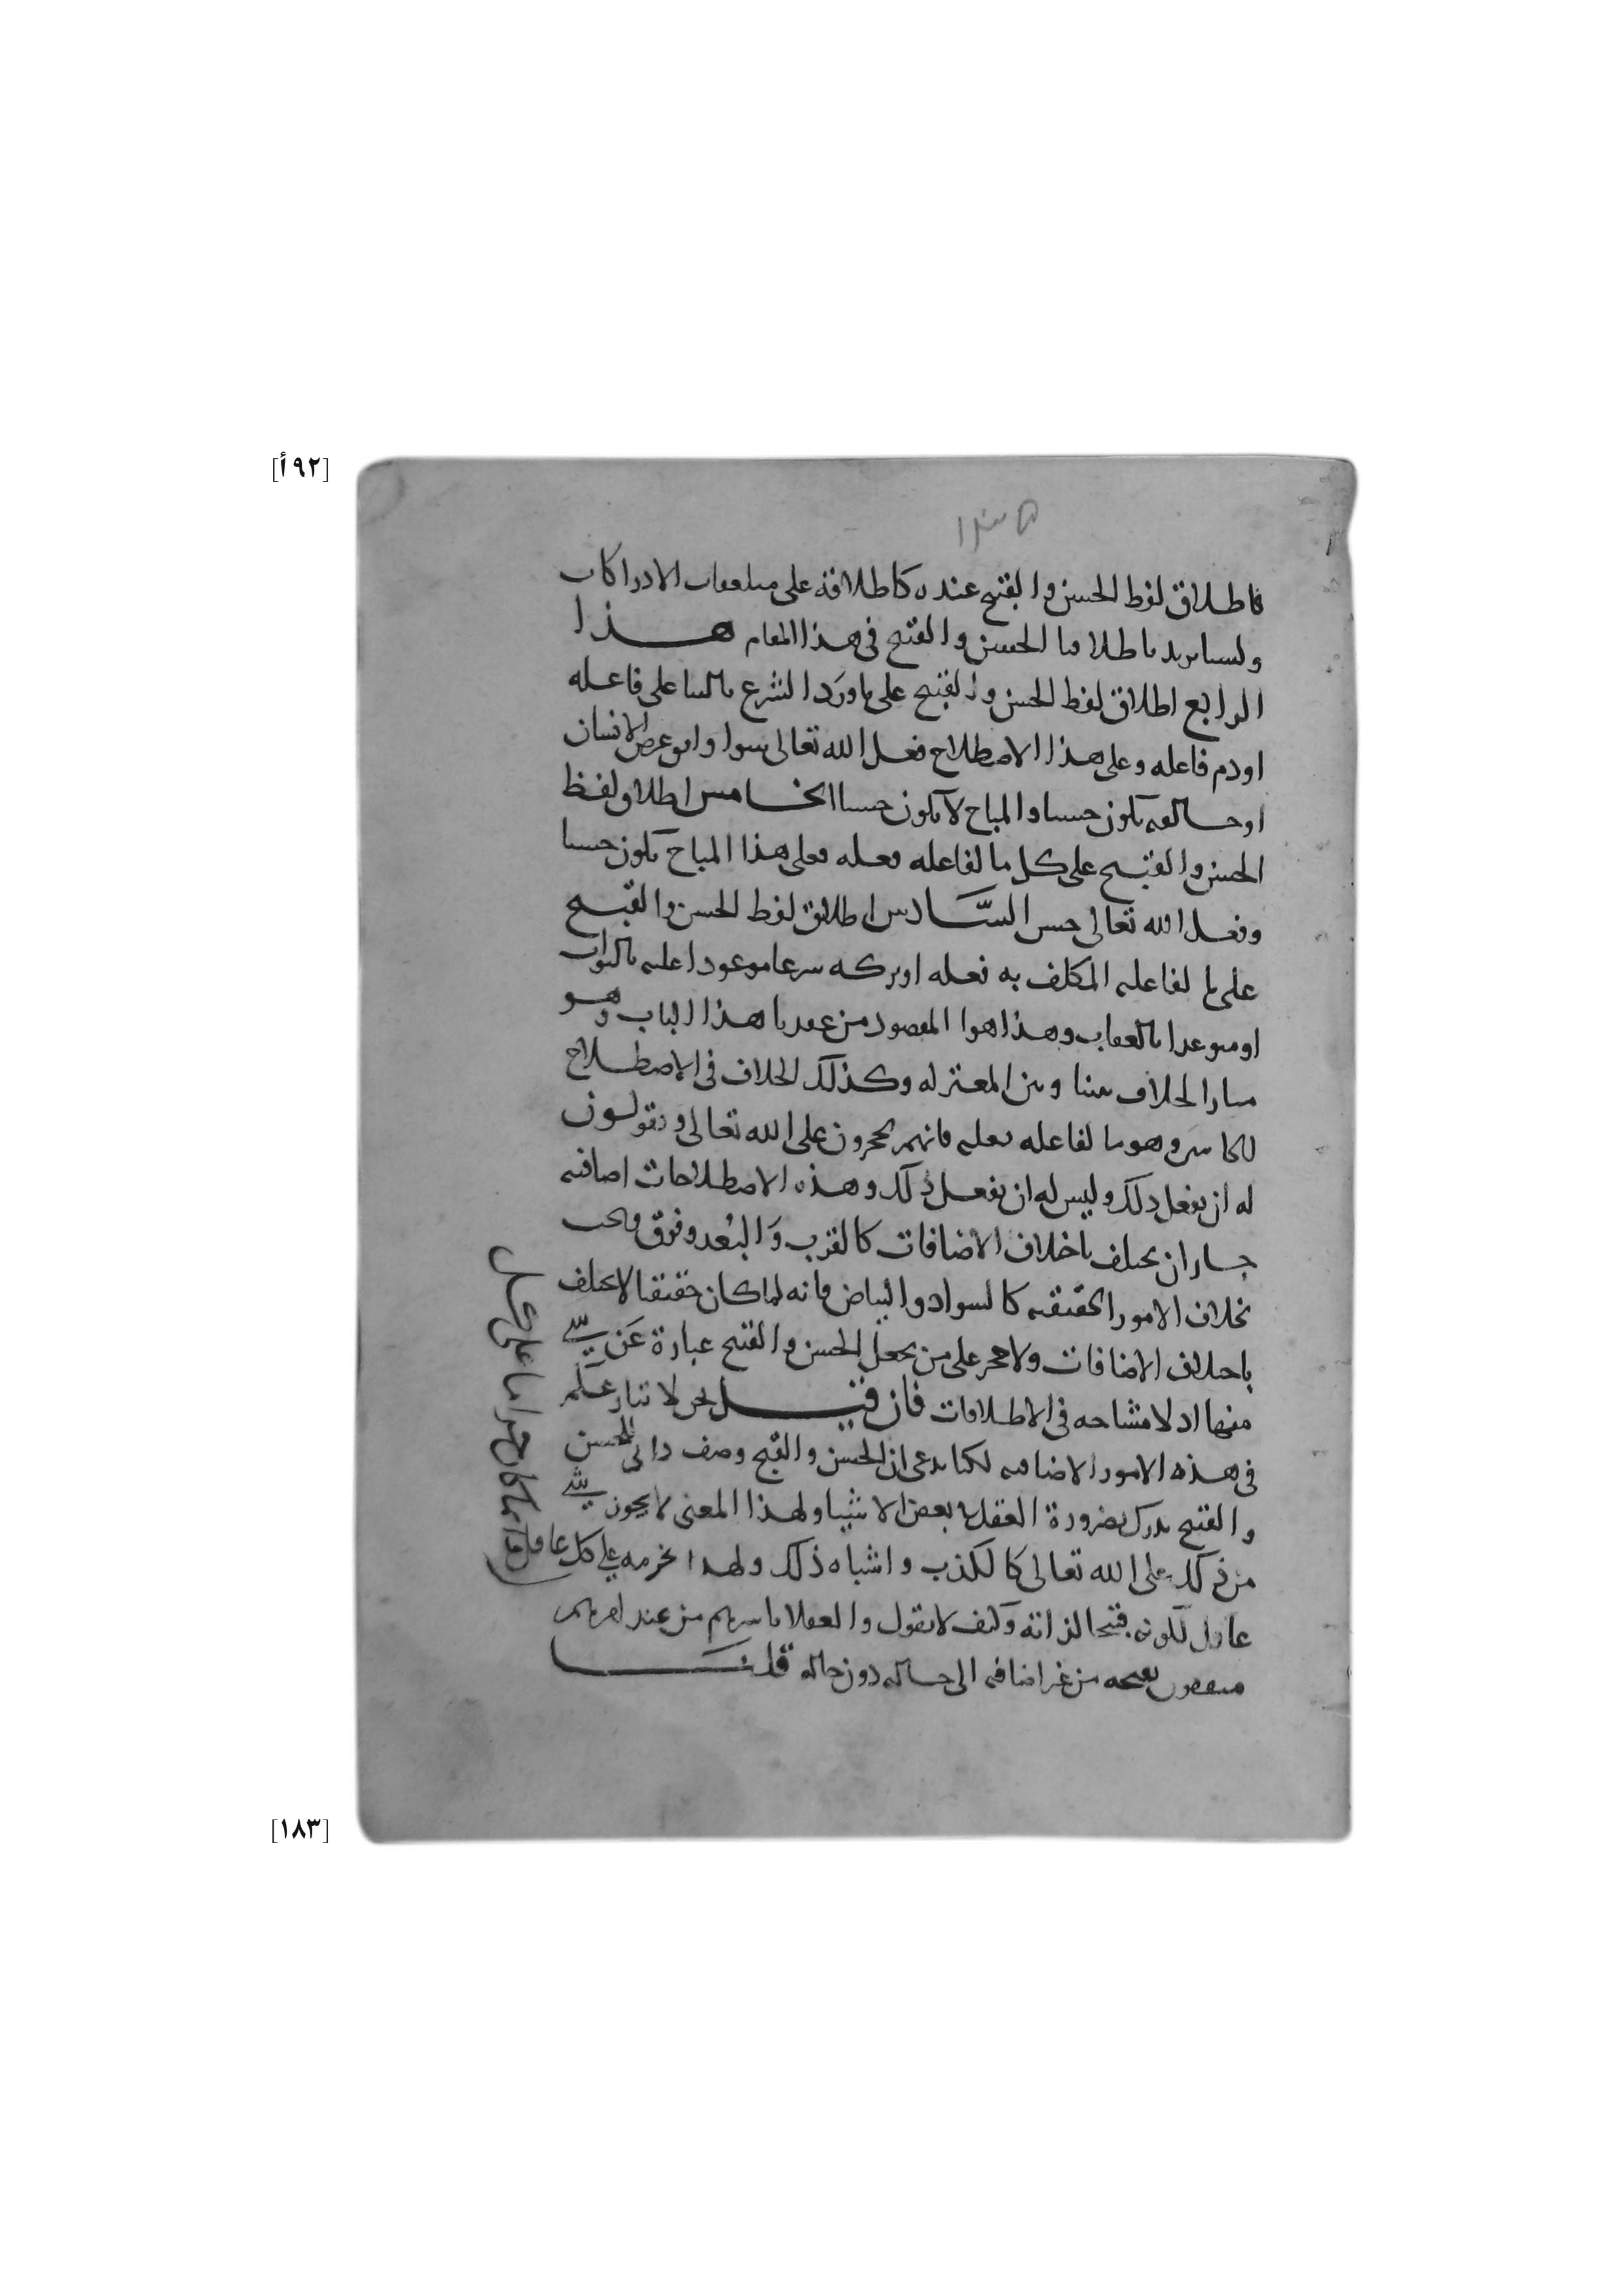 [٩٢أ]
فاطلاق لفظ الحسن والقبيح عنده كاطلاقه على متعلقات الادراكات
ولسنا نريد باطلاقنا الحسن والقبيح في هذا المقام هذا
الرابع اطلاق لفظ الحسن والقبيح على ما ورد الشرع بالثنا على فاعله
او ذم فاعله وعلى هذا الاصطلاح فعل الله تعالى سوا وافق غرض الانسان
او خالفه يكون حسنا والمباح لا يكون حسنا الخامس اطلاق لفظ
الحسن والقبيح على كل ما لفاعله فعله فعلى هذا المباح يكون حسنا
وفعل الله تعالى حسن السادس اطلاق لفظ الحسن والقبيح
على ما لفاعله المكلف به فعله او تركه شرعا موعودا عليه بالثواب
او متوعدا بالعقاب وهذا هو المقصود من عقدنا هذا الباب وهو
مثار الخلاف بيننا وبين المعتزله وكذلك الخلاف في الاصطلاح
الخامس وهو ما لفاعله فعله فانهم يحجرون على الله تعالى ويقولون
له ان يفعل ذلك وليس له ان يفعل ذلك وهذه الاصطلاحات اضافيه
جاز ان يختلف باختلاف الاضافات كالقرب والبعد وفوق وتحت
بخلاف الامور الحقيقيه كالسواد والبياض فانه لما كان حقيقيا لا يختلف
باختلاف الاضافات ولا حجر على من يجعل الحسن والقبيح عبارة عن شي
منها اذ لا مشاحه في الاطلاقات فان قيل نحن لا ننازعكم
في هذه الامور الاضافيه لكنا ندعي ان الحسن والقبح وصف ذاتي للحسن
والقبيح يدرك بضرورة العقل في بعض الاشيا ولهذا المعنى لا يجوز شي
من ذلك على الله تعالى كالكذب واشباه ذلك ولهذا نحرمه على كل عاقل
عاقل لكونه قبيحا لذاته وكيف لا نقول والعقلا باسرهم من عند اخرهم
متفقون بقبحه من غير اضافه الى حاله دون حاله قلنا
[١٨٣]